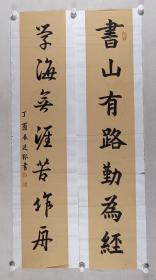 書山有路勤為經
學海無涯苦作舟
丁酉